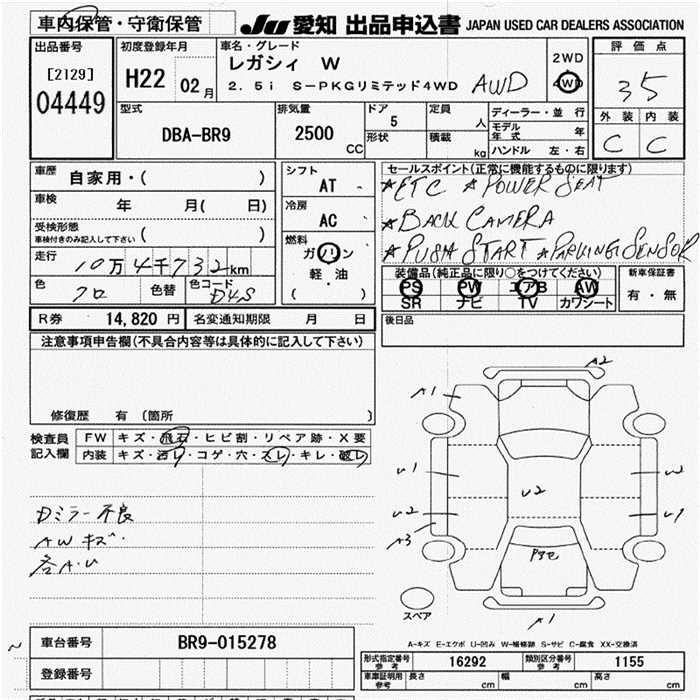 車内保管・守衛保管
JU 愛知 出品申込書 JAPAN USED CAR DEALERS ASSOCIATION
出品番号
[2129]
04449
初度登録年月
H22 02月
車名・グレード
レガシィ W
2.5i S-PKGリミテッド4WD AWD
2WD
4WD
評価点
3.5
外装 内装
C C
型式
DBA-BR9
排気量
2500 CC
ドア
5
形状
定員
人
積載
kg
ディーラー・並行
モデル年式 年
ハンドル 左・右
車歴 自家用・( )
車検 年 月( 日)
受検形態
車検付きのみ記入して下さい ( )
走行 10万4千732km
色 クロ 色替 色コード D4S
シフト
AT
冷房
AC
燃料
ガソリン
軽・油
( )
セールスポイント(正常に機能するものに限ります)
★ETC ★POWER SEAT
★BACK CAMERA
★PUSH START ★PARKING SENSOR
装備品(純正品に限り○をつけてください)
PS PW エアB AW
SR ナビ TV カワシート
新車保証書
有・無
R券 14,820円 名変通知期限 月 日
後日品
注意事項申告欄(不具合内容等は具体的に記入して下さい)
修復歴 有(箇所 )
検査員記入欄
FW キズ・飛石・ヒビ割・リペア跡・X要
内装 キズ・汚レ・コゲ・穴・スレ・キレ・破レ
Dミラー不良
AW キズ
各A.U
A2
A1
U1
U2
A3
U2
W
U1
スペア
A1
A-キズ E-エクボ U-凹み W-補修跡 S-サビ C-腐食 XX-交換済
車台番号 BR9-015278
登録番号
形式指定番号参考 16292 類別区分番号参考 1155
車庫証明用参考 長さ cm 幅 cm 高さ cm